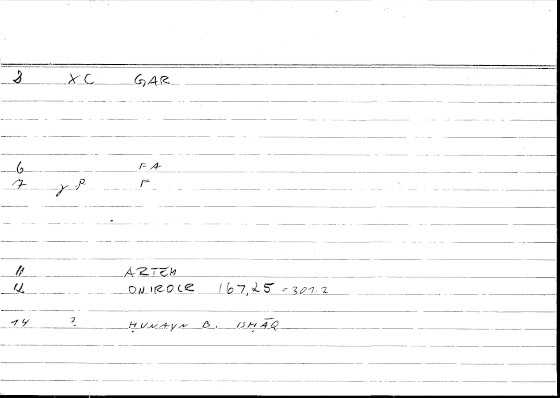 3 XC GAR
6 FA
7 γ P. F
11 ARTEM
12 ONIROCR 167,25 = 301.2
14 ? ḤUNAYN B. ISḤĀQ